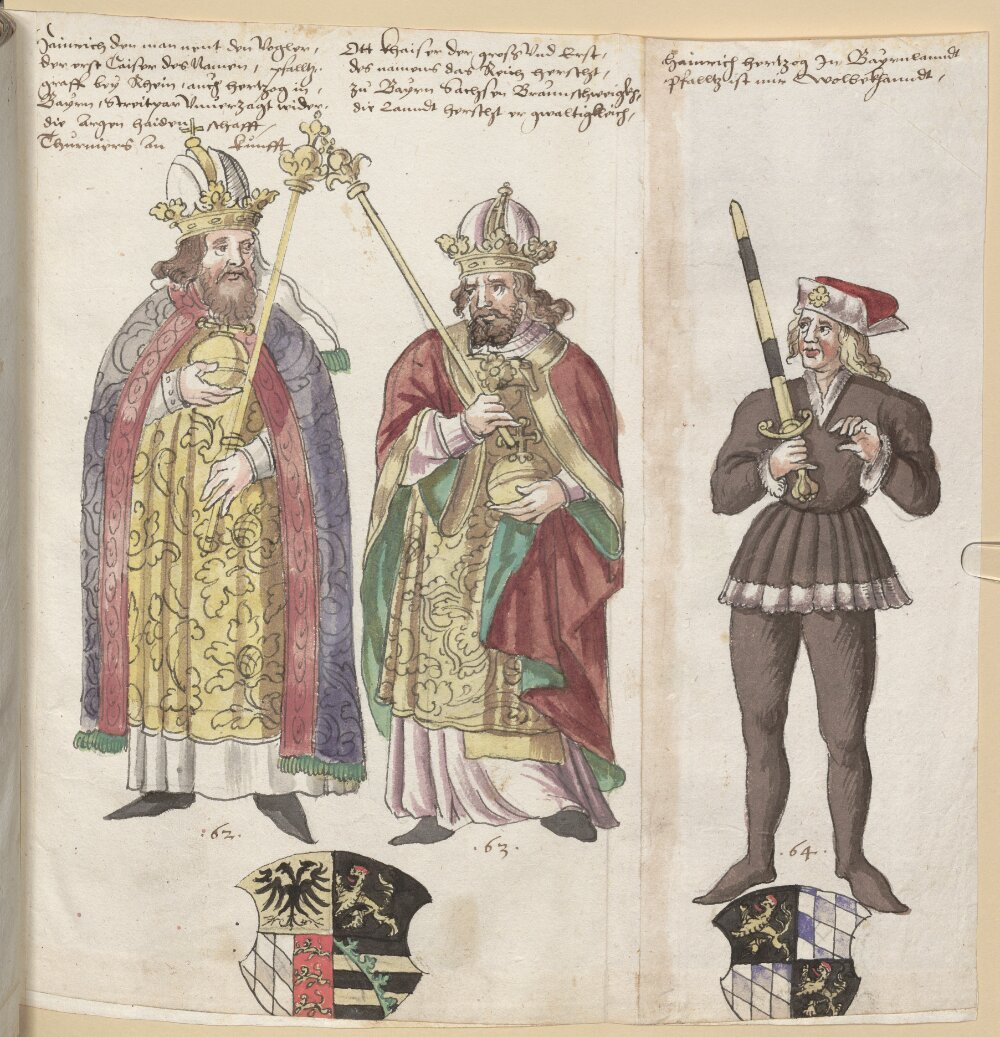 Hainrich den man nent den Vogler,
der erst Caiser des Namen, pfalltz-
graff bey Rhein, auch hertzog in,
Bayrn, Streitpar Vnuerzagt wider-
die Argen haiden, schafft,
Thurniers An kunfft
Ott Khaiser der groß Vnd Erst,
des namens das Reich herscht,
zu Bayrn Sachsen Braunschweigkh,
die Lanndt herscht er gwaltigkleich,
Hainrich hertzog In Bayrnlanndt
Pfalltz ist mir Wolbekhanndt,
.62.
.63.
.64.